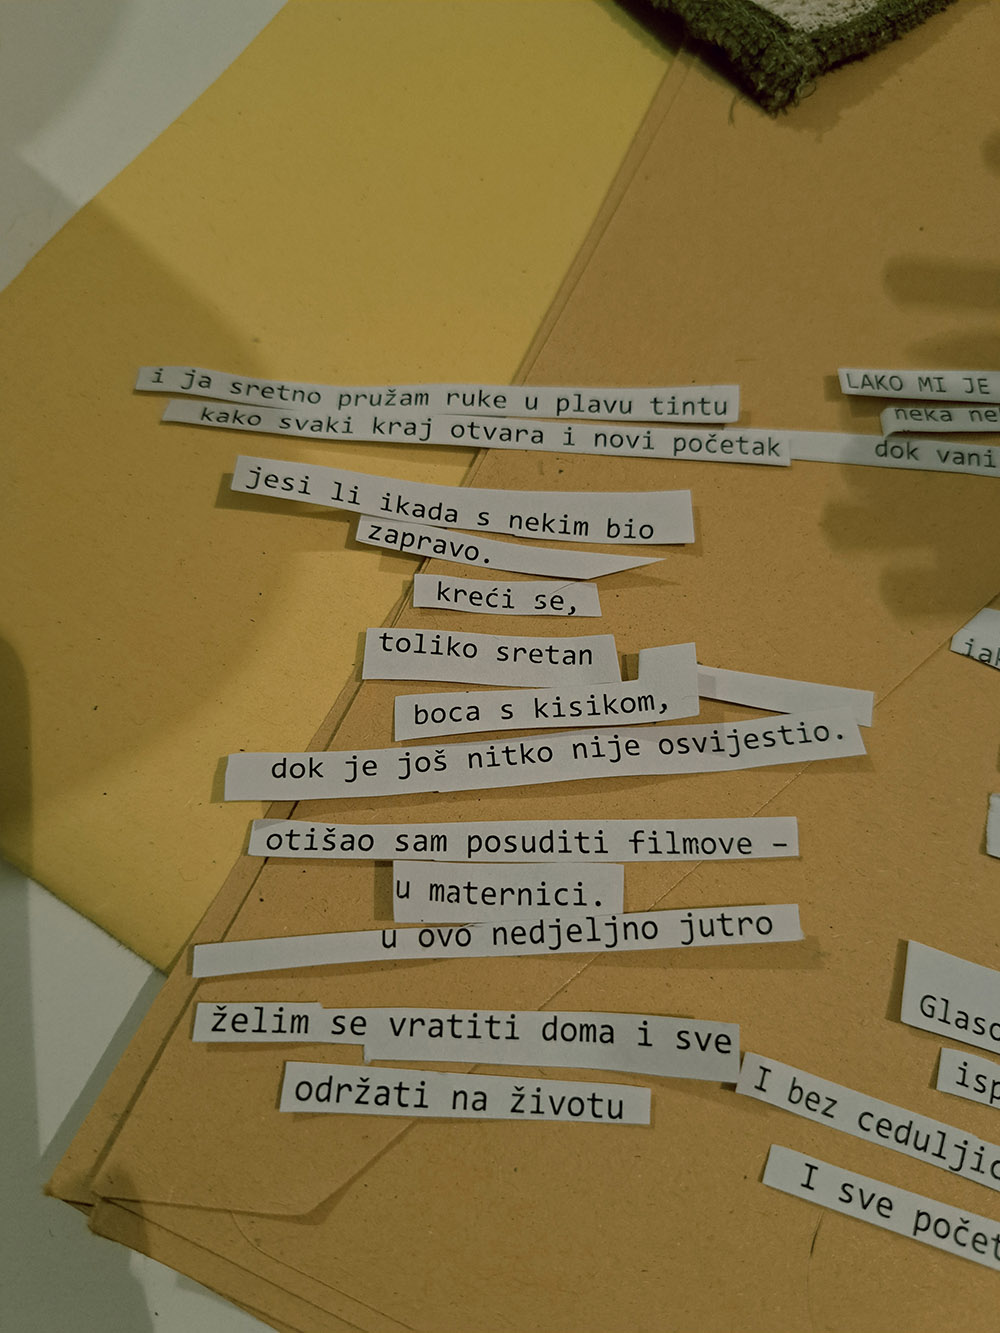 i ja sretno pružam ruke u plavu tintu
kako svaki kraj otvara i novi početak
jesi li ikada s nekim bio
zapravo.
kreći se,
toliko sretan
boca s kisikom,
dok je još nitko nije osvijestio.
otišao sam posuditi filmove –
u maternici.
u ovo nedjeljno jutro
želim se vratiti doma i sve
održati na životu
LAKO MI JE
neka ne
dok vani
I bez
I sve